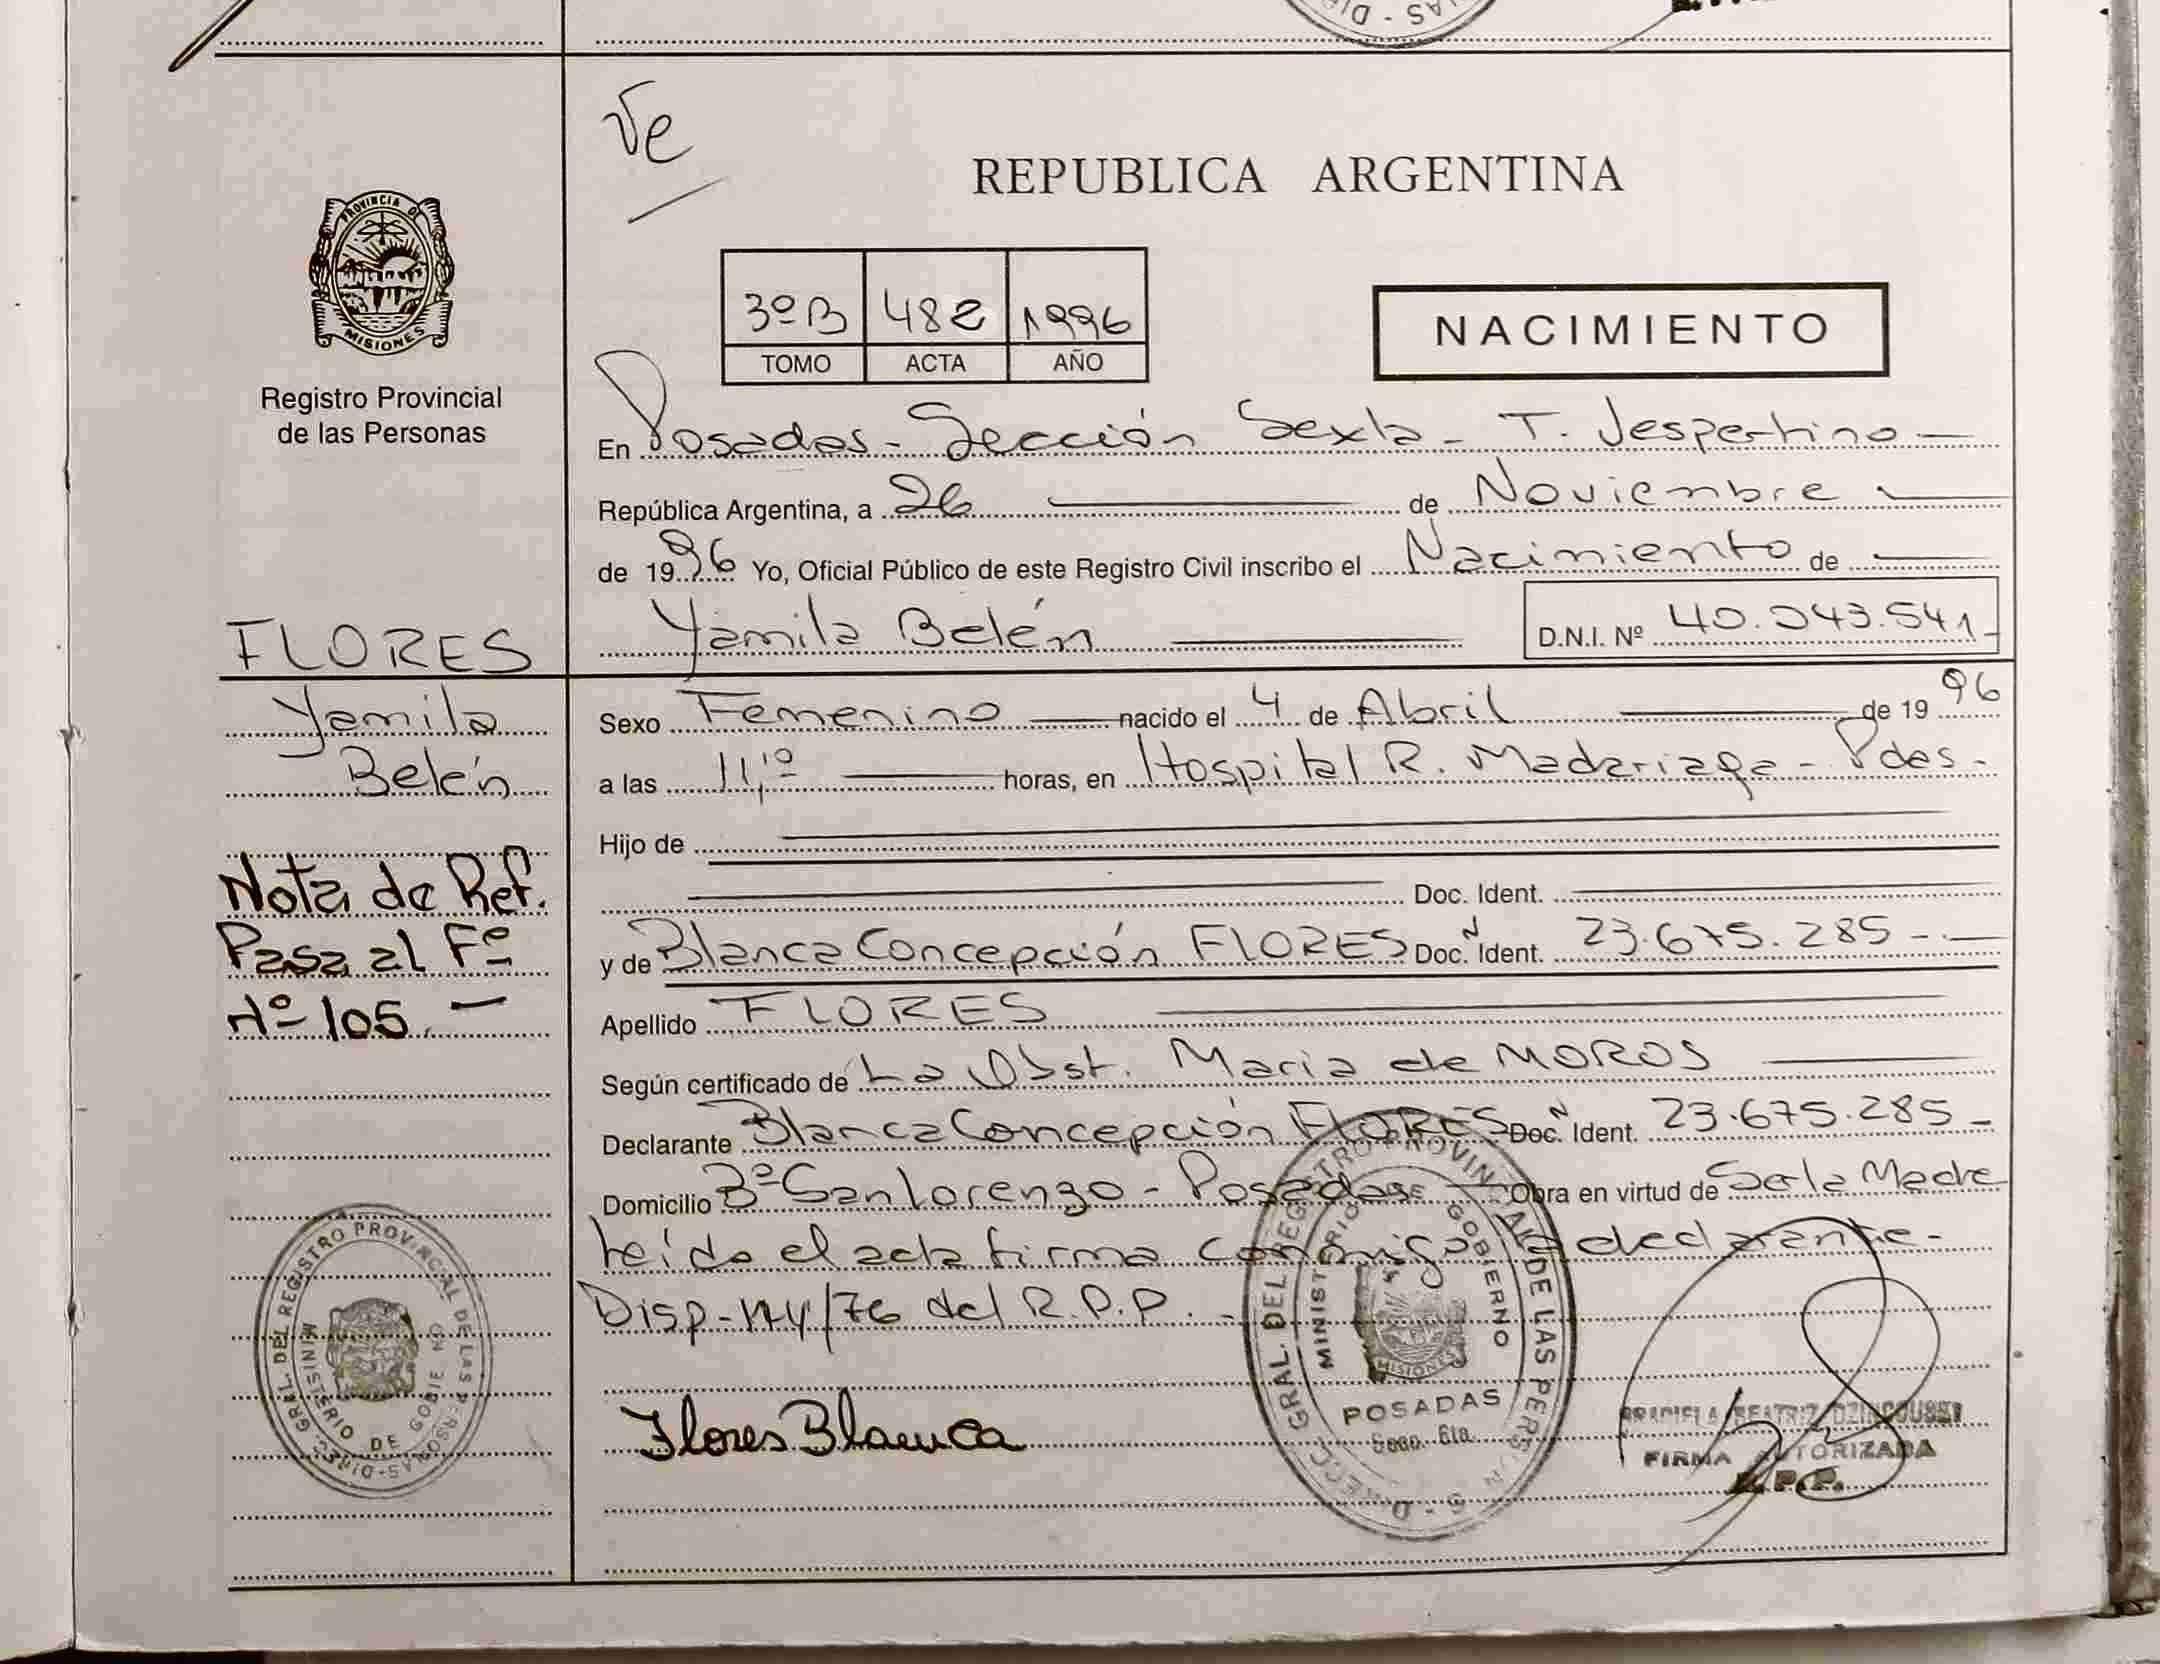 Ve
REPUBLICA ARGENTINA
PROVINCIA DE
MISIONES
Registro Provincial
de las Personas
3º B 482 1996
TOMO ACTA AÑO
NACIMIENTO
En Posadas - Sección Sexta - T. Vespertino
República Argentina, a 26 de Noviembre
de 1996 Yo, Oficial Público de este Registro Civil inscribo el Nacimiento de
Yamila Belén D.N.I. Nº 40.043.541-
FLORES
Yamila
Belén
Nota de Ref.
Pasa al Fº
Nº 105. -
Sexo Femenino nacido el 4 de Abril de 1996
a las 11,10 horas, en Hospital R. Madariaga - Pdas.
Hijo de
Doc. Ident.
y de Blanca Concepción FLORES Doc. N Ident. 23.675.285 -.-
Apellido FLORES
Según certificado de La Obst. Maria de MOROS
Declarante Blanca Concepción FLORES Doc. N Ident. 23.675.285 -
Domicilio Bº San Lorenzo - Posadas Obra en virtud de Ser la Madre
Leída el acta firma conmigo la declarante.
Disp. 174/76 del R.P.P. -
Flores Blanca
DIRECC. GRAL. DEL REGISTRO PROVINCIAL DE LAS PERSONAS
MINISTERIO DE GOBIERNO
MISIONES
POSADAS
Secc. 6ta.
GRACIELA BEATRIZ
FIRMA AUTORIZADA
R.P.P.
DIRECC. GRAL. DEL REGISTRO PROVINCIAL DE LAS PERSONAS
MINISTERIO DE GOBIE